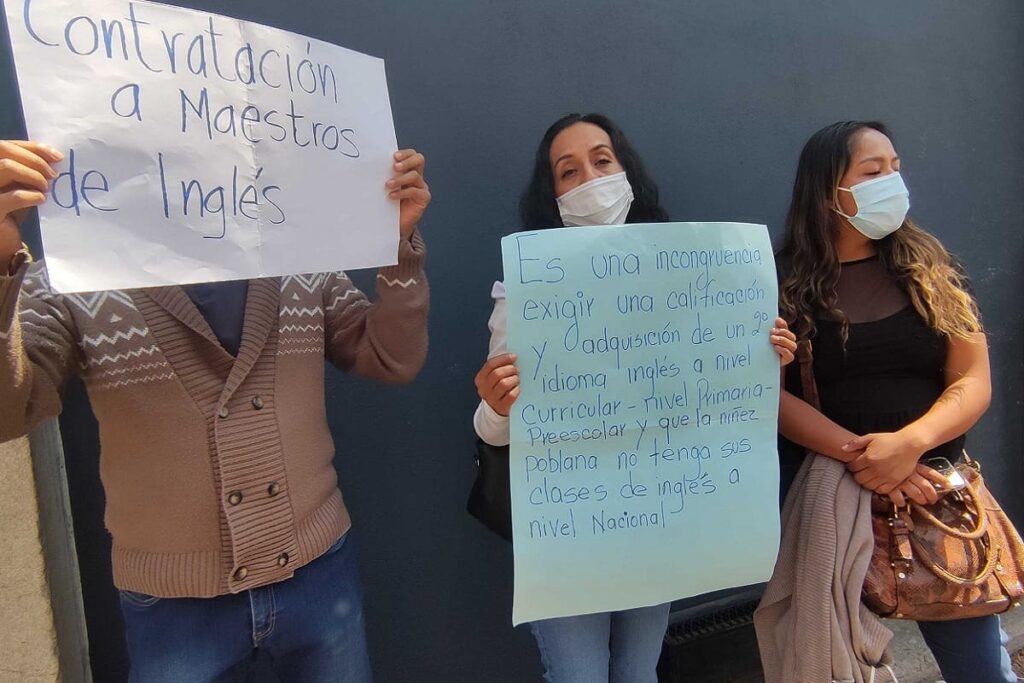 Contratación
a Maestros
de Inglés
Es una incongruencia
exigir una calificación
y adquisición de un 2º
idioma inglés a nivel
Curricular - nivel Primaria-
Preescolar y que la niñez
poblana no tenga sus
clases de inglés a
nivel Nacional